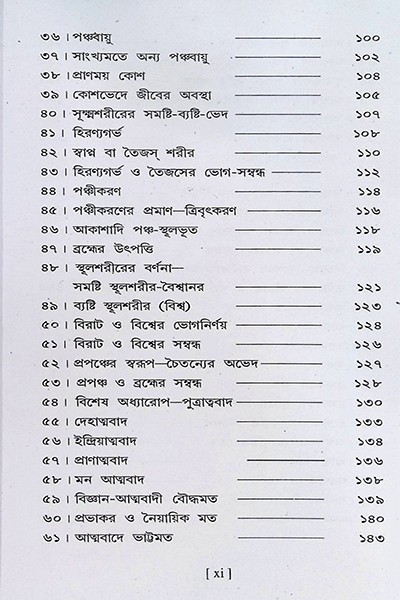 ৩৬। পঞ্চবায়ু ———— ১০০
৩৭। সাংখ্যমতে অন্য পঞ্চবায়ু ———— ১০২
৩৮। প্রাণময় কোশ ———— ১০৪
৩৯। কোশভেদে জীবের অবস্থা ———— ১০৫
৪০। সূক্ষ্মশরীরের সমষ্টি-ব্যষ্টি-ভেদ ———— ১০৭
৪১। হিরণ্যগর্ভ ———— ১০৮
৪২। স্বাপ্ন বা তৈজস্ শরীর ———— ১১০
৪৩। হিরণ্যগর্ভ ও তৈজসের ভোগ-সম্বন্ধ ———— ১১২
৪৪। পঞ্চীকরণ ———— ১১৪
৪৫। পঞ্চীকরণের প্রমাণ—ত্রিবৃৎকরণ ———— ১১৬
৪৬। আকাশাদি পঞ্চ-স্থূলভূত ———— ১১৮
৪৭। ব্রহ্মের উৎপত্তি ———— ১১৯
৪৮। স্থূলশরীরের বর্ণনা—
সমষ্টি স্থূলশরীর-বৈশ্বানর ———— ১২১
৪৯। ব্যষ্টি স্থূলশরীর (বিশ্ব) ———— ১২৩
৫০। বিরাট ও বিশ্বের ভোগনির্ণয় ———— ১২৪
৫১। বিরাট ও বিশ্বের সম্বন্ধ ———— ১২৬
৫২। প্রপঞ্চের স্বরূপ—চৈতন্যের অভেদ ———— ১২৭
৫৩। প্রপঞ্চ ও ব্রহ্মের সম্বন্ধ ———— ১২৮
৫৪। বিশেষ অধ্যারোপ—পুত্রাত্মবাদ ———— ১৩০
৫৫। দেহাত্মবাদ ———— ১৩৩
৫৬। ইন্দ্রিয়াত্মবাদ ———— ১৩৪
৫৭। প্রাণাত্মবাদ ———— ১৩৬
৫৮। মন আত্মবাদ ———— ১৩৮
৫৯। বিজ্ঞান-আত্মবাদী বৌদ্ধমত ———— ১৩৯
৬০। প্রভাকর ও নৈয়ায়িক মত ———— ১৪০
৬১। আত্মবাদে ভাট্টমত ———— ১৪৩
[ xi ]